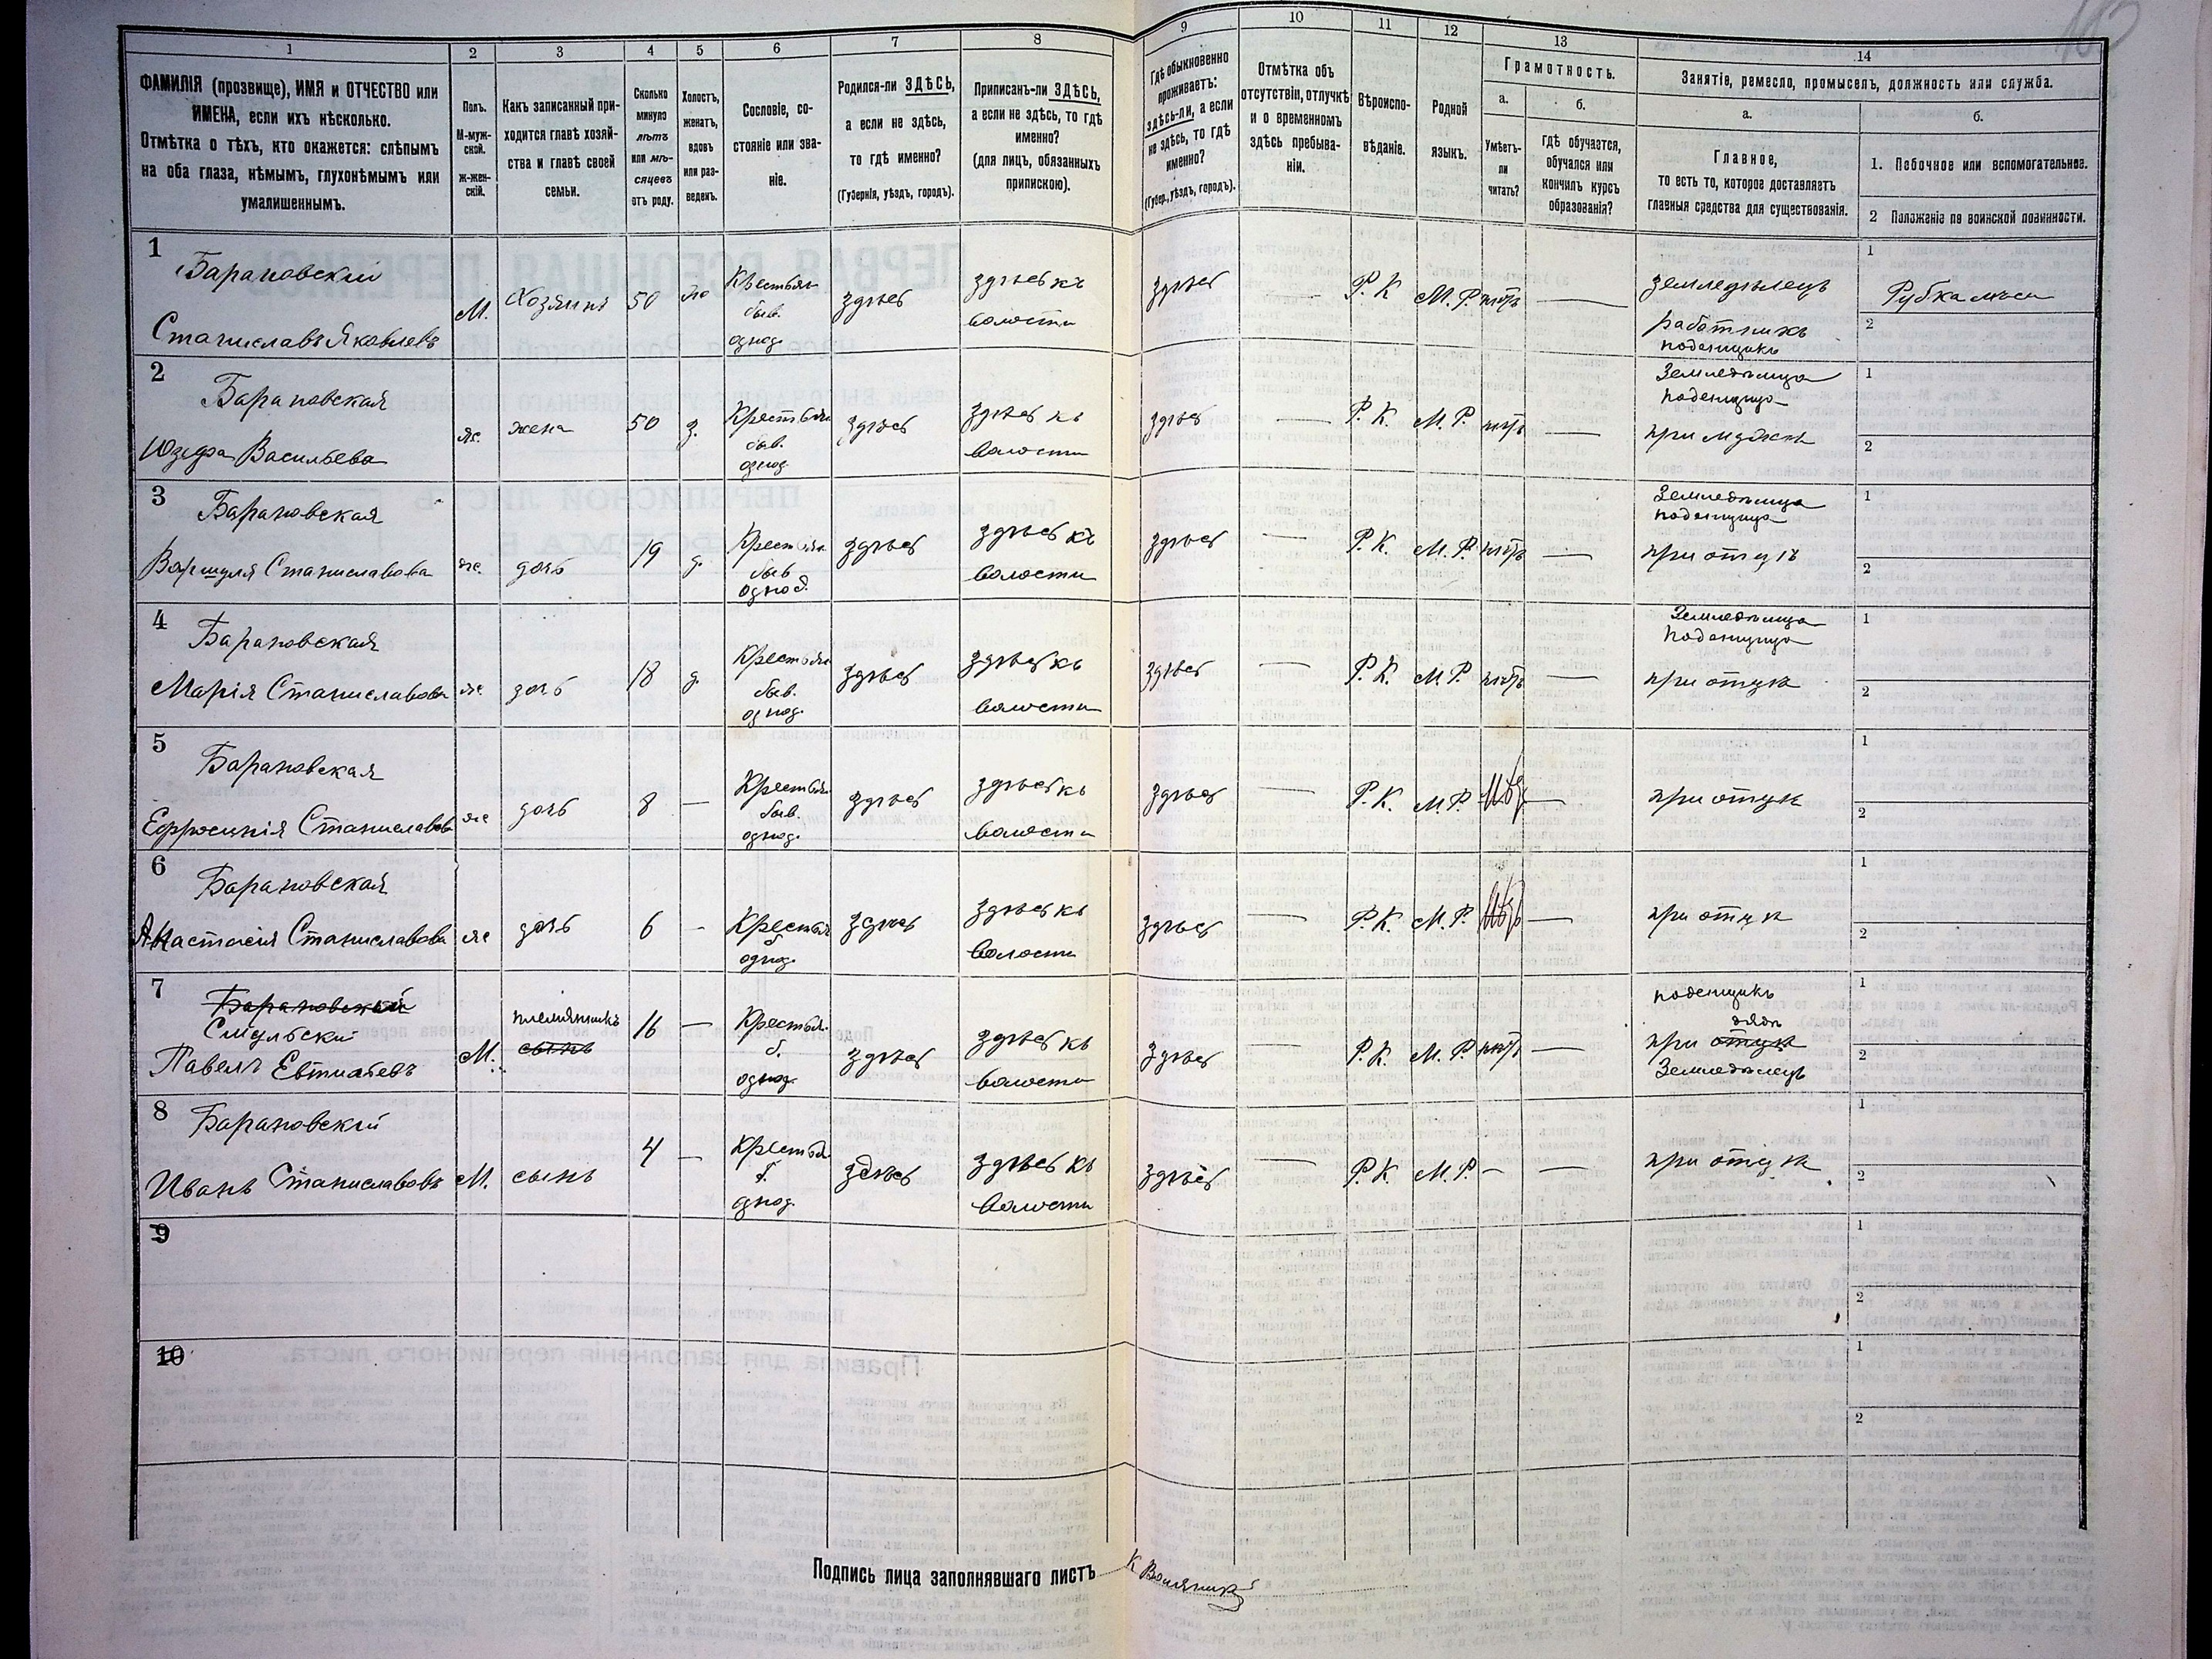 1 2 3 4 5 6 7 8 9 10 11 12 13 14
ФАМИЛІЯ (прозвище), ИМЯ и ОТЧЕСТВО или
ИМЕНА, если ихъ нѣсколько.
Отмѣтка о тѣхъ, кто окажется: слѣпымъ
на оба глаза, нѣмымъ, глухонѣмымъ или
умалишеннымъ.
Полъ.
М-муж-
ской.
Ж-жен-
скій.
Какъ записанный при-
ходится главѣ хозяй-
ства и главѣ своей
семьи.
Сколько
минуло
лѣтъ
или мѣ-
сяцевъ
отъ роду.
Холостъ,
женатъ,
вдовъ
или раз-
веденъ.
Сословіе, со-
стояніе или зва-
ніе.
Родился-ли ЗДѢСЬ,
а если не здѣсь,
то гдѣ именно?
(Губернія, уѣздъ, городъ).
Приписанъ-ли ЗДѢСЬ,
а если не здѣсь, то гдѣ
именно?
(для лицъ, обязанныхъ
припискою).
Гдѣ обыкновенно
проживаетъ:
здѣсь-ли, а если
не здѣсь, то гдѣ
именно?
(Губер., уѣздъ, городъ).
Отмѣтка объ
отсутствіи, отлучкѣ
и о временномъ
здѣсь пребыва-
ніи.
Вѣроиспо-
вѣданіе.
Родной
языкъ.
Грамотность.
а.
Умѣетъ-
ли
читать?
б.
Гдѣ обучается,
обучался или
кончилъ курсъ
образованія?
Занятіе, ремесло, промыселъ, должность или служба.
а.
Главное,
то есть то, которое доставляетъ
главныя средства для существованія.
б.
1. Побочное или вспомогательное.
2 Положеніе по воинской повинности.
1
Барановскій
Станиславъ Яковлевъ
М.
Хозяинъ
50
же
Крестьян
быв.
однод.
здѣсь
здѣсь къ
волости
здѣсь
—
Р. К
М. Р.
нѣтъ
—
земледѣлецъ
работникъ
поденщикъ
1
Рубка лѣса
2
2
Барановская
Юзефа Васильева
ж.
жена
50
з.
Крестьян
быв.
однод
здѣсь
здѣсь къ
волости
здѣсь
—
Р. К.
М. Р.
нѣтъ
—
Земледѣлица
поденщица
при мужѣ
1
2
3
Барановская
Варшуля Станиславова
ж.
дочь
19
д.
Крестьян
быв
однод.
здѣсь
здѣсь къ
волости
здѣсь
—
Р. К.
М. Р.
нѣтъ
—
Земледѣлица
поденщица
при отцѣ
1
2
4
Барановская
Марія Станиславова
ж.
дочь
18
д.
Крестьян
быв.
однод.
здѣсь
здѣсь къ
волости
здѣсь
—
Р. К.
М. Р.
нѣтъ
—
Земледѣлица
Поденщица
при отцѣ
1
2
5
Барановская
Ефросинія Станиславов
ж
дочь
8
—
Крестьян
быв.
однод.
здѣсь
здѣсь къ
волости
здѣсь
—
Р. К.
М. Р.
—
при отцѣ
1
2
6
Барановская
Анастасія Станиславова
ж
дочь
6
-
Крестьян
б
однод.
здѣсь
здѣсь къ
волости
здѣсь
—
Р. К.
М. Р.
—
при отцѣ
1
2
7
Барановскій
Павелъ
М.
племянникъ
сынъ
16
—
Крестьян.
б.
однод.
здѣсь
здѣсь къ
волости
здѣсь
—
Р. К.
М. Р.
нѣтъ
—
поденщикъ
дядѣ
при отцѣ
Земледѣлецъ
1
2
8
Барановскій
Иванъ Станиславовъ
М.
сынъ
4
—
Крестьян
б.
однод.
здѣсь
здѣсь къ
волости
здѣсь
—
Р. К.
М. Р.
—
—
при отцѣ
1
2
9
1
2
10
1
2
Подпись лица заполнявшаго листъ